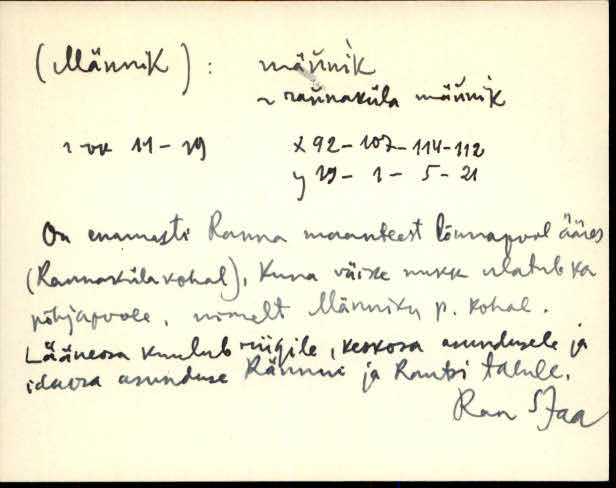 (Männik) : männik
~ rannaküla männik
11 - 19 x 92 - 107 - 114 - 112
y 19 - 1 - 5 - 21
On enamasti Ranna maanteest lõunapool ääres
(Rannaküla kohal), kuna väike nukk ulatub ka
põhjapoole, nimelt Männiku p. kohal.
Lääneosa kuulub riigile, keskosa asundusele ja
idaosa asunduse Männi ja Rautsi talule.